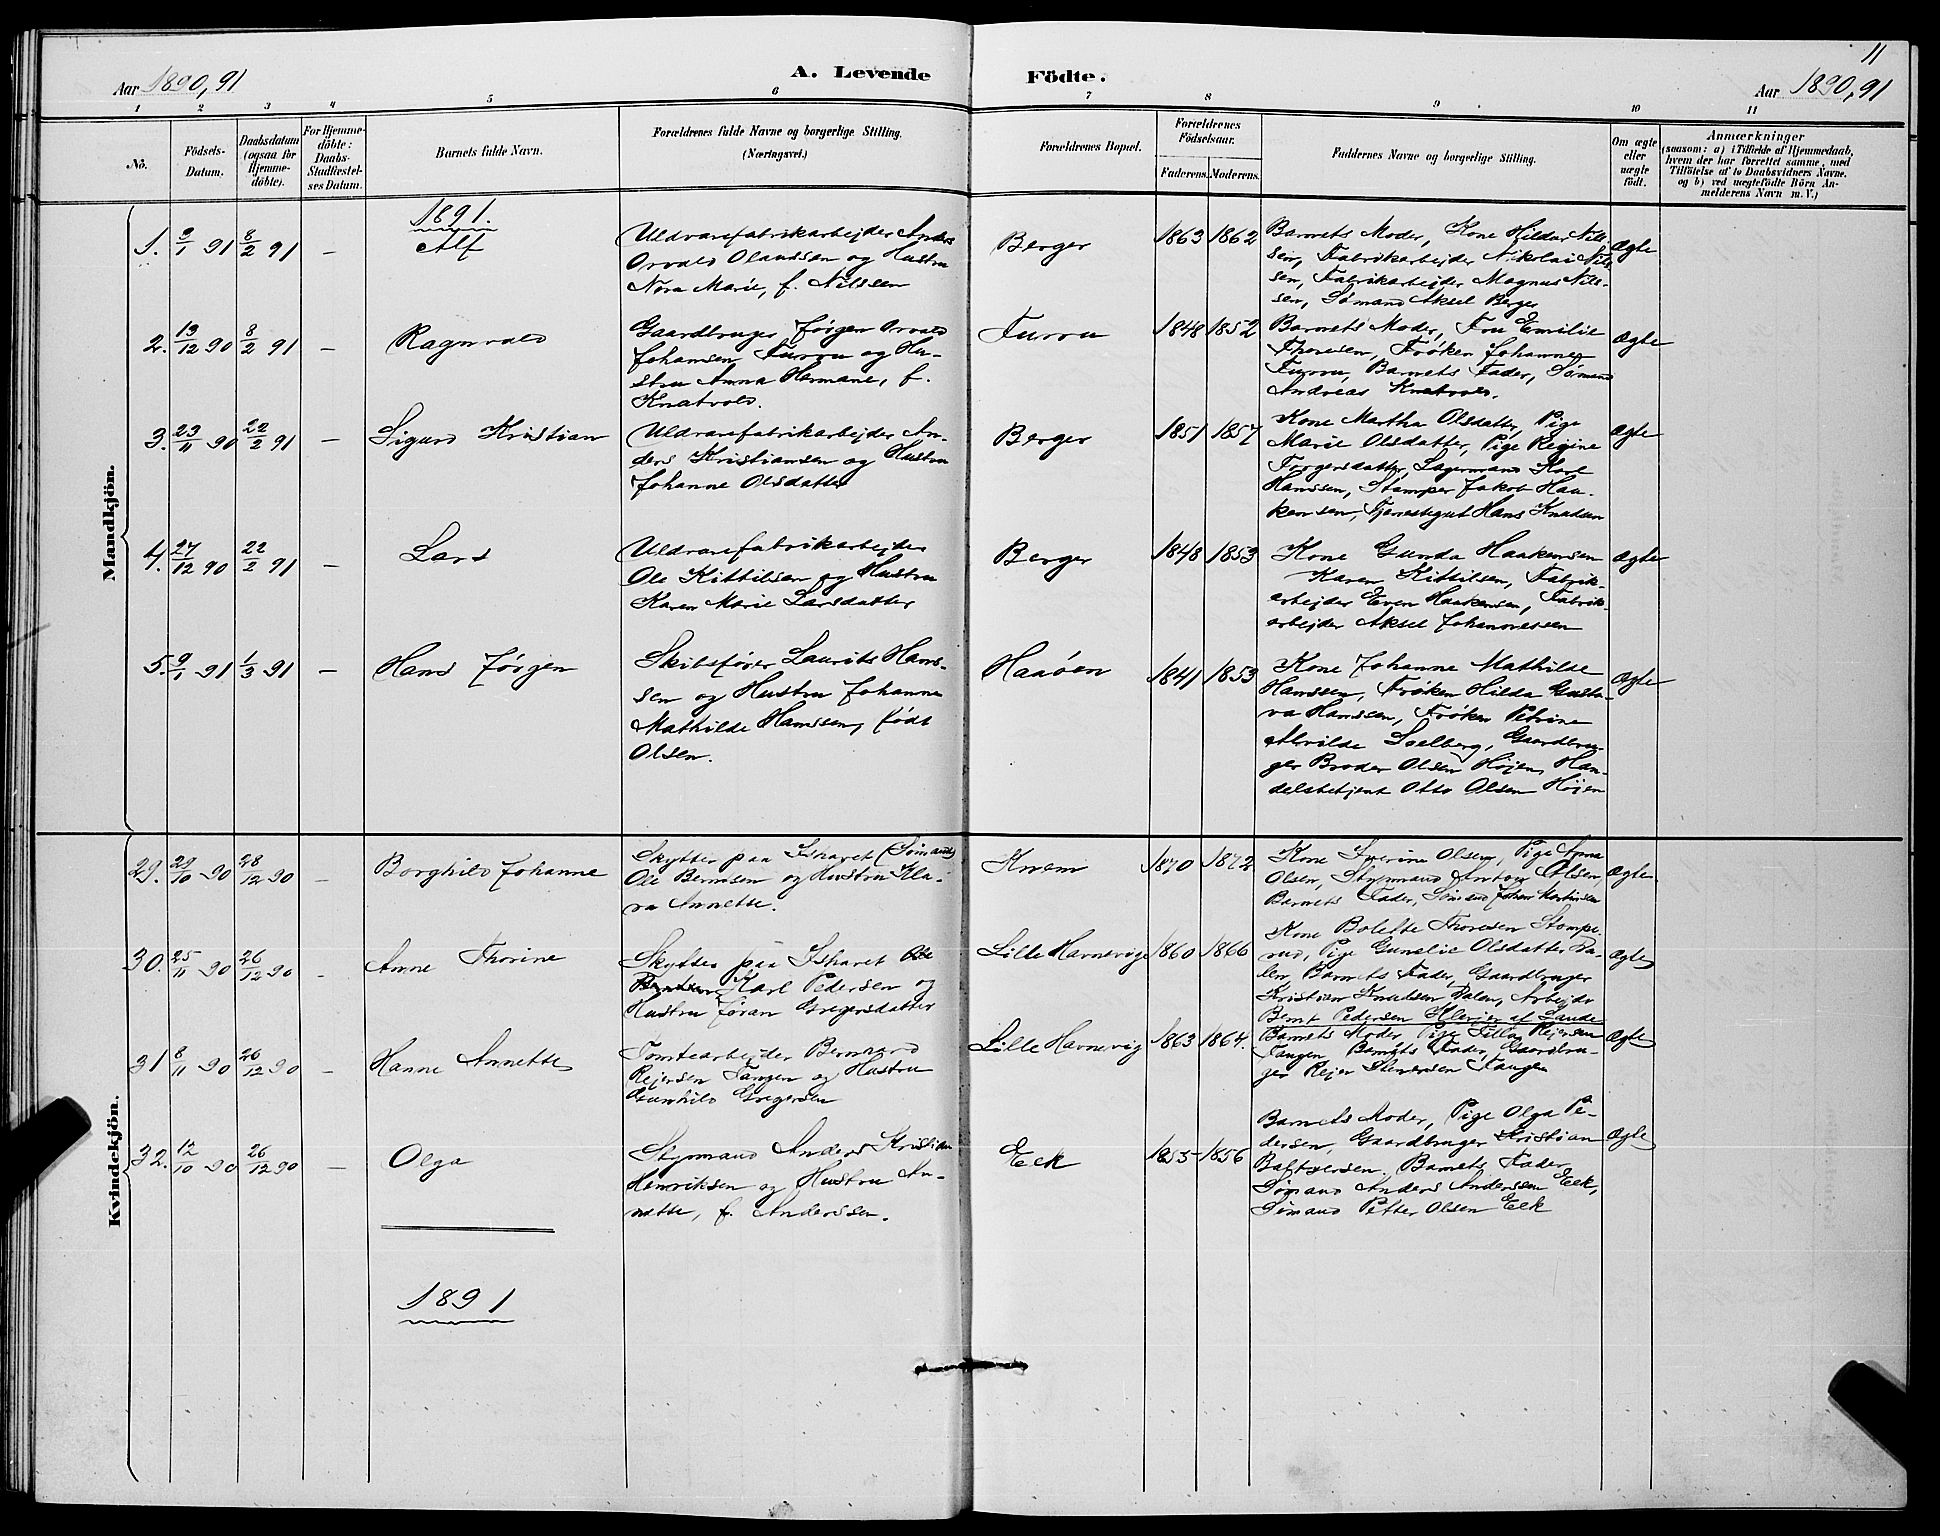 11
Aar 1890,91 A. Levende Födte. Aar 1890,91
1 2 3 4 5 6 7 8 9 10 11
Nö.
Födsels-
Datum.
Daabsdatum
(ogsaa for
Hjemme-
döbte).
For Hjemme-
döbte:
Daabs-
Stadfæstel-
ses Datum.
Barnets fulde Navn.
Forældrenes fulde Navne og borgerlige Stilling.
(Næringsvei.)
Forældrenes Bopæl.
Forældrenes
Födselsaar.
Faderens. Moderens.
Faddernes Navne og borgerlige Stilling.
Om ægte
eller
uægte
födt.
Anmærkninger
(saasom: a) i Tilfælde af Hjemmedaab,
hvem der har forrettet samme, med
Tilföielse af to Daabsvidners Navne.
og b) ved uægtefödte Börn An-
melderens Navn m. V.)
Mandkjön.
1891.
1. 9/1 91 8/2 91 – Alf
Uldvarefabrikarbejder Anders
Orvald Olaussen og Hustru
Nora Marie, f. Nilssen
Berger 1863 1862
Barnets Moder, Kone Hildur Nils-
sen, Fabrikarbejder Nikolai Nils-
sen, Fabrikarbejder Magnus Nils-
sen, Sømand Aksel Berger
Ægte
2. 13/12 90 8/2 91 – Ragnvald
Gaardbruger Jørgen Orvald
Johansen Furru og Hu-
stru Anna Hermane, f.
Knatvold.
Furru 1848 1852
Barnets Moder, Fru Emilie
Thoresen, Frøken Johanne
Furru, Barnets Fader, Sømand
Andreas Knatvold.
Ægte
3. 23/11 90 22/2 91 – Sigurd Kristian
Uldvarefabrikarbejder An-
ders Kristiansen og Hustru
Johanne Olsdatter
Berger 1851 1857
Kone Martha Olsdatter, Pige
Marie Olsdatter, Pige Regine
Torgersdatter, Lagermand Karl
Hanssen, Stamper Jakob Haa-
kensen, Tjenestegut Hans Knudsen
Ægte
4. 27/12 90 22/2 91 – Lars
Uldvarefabrikarbejder
Ole Kittilsen og Hustru
Karen Marie Larsdatter
Berger 1848 1853
Kone Gunda Haakensen
Karen Kittilsen, Fabrik-
arbejder Even Haakensen, Fabrik-
arbejder Aksel Johannessen
Ægte
5. 9/1 91 1/3 91 – Hans Jørgen
Skibsfører Laurits Hans-
sen og Hustru Johanne
Mathilde Hanssen, født
Olsen.
Haaøen 1841 1853
Kone Johanne Mathilde
Hanssen, Frøken Hilda Gusta-
va Hanssen, Frøken Petrine
Alvilde Soelberg, Gaardbru-
ger Broder Olsen Højen, Han-
delsbetjent Otto Olsen Højen
Ægte
Kvindekjön.
29. 29/10 90 28/12 90 – Borghild Johanne
Skytter paa Ishavet (Sømand)
Ole Berntsen og Hustru Kla-
ra Annette.
Knem 1870 1872
Kone Severine Olsen, Pige Anna
Olsen, Styrmand Anton Olsen,
Barnets Fader, Sømand Johan Martinsen
Ægte.
30. 25/11 90 26/12 90 – Anne Thorine
Skytter paa Ishavet Ole
Berntsen, Karl Pedersen og
Hustru Jøran Gregersdatter
Lille Havnevig 1860 1866
Kone Bolette Thoresen Stompe-
rud, Pige Gunelie Olsdatter Da-
len, Barnets Fader, Gaardbruger
Kristian Knudsen Dalen, Arbejder
Bernt Pedersen Klevjer af Sande
Ægte
31 8/11 90 26/12 90 – Hanne Annette
Tomtearbejder Bernhard
Rejersen Tangen og Hustru
Gunhild Gregersen
Lille Havnevig 1863 1864.
Barnets Moder, Pige Rejersen
Tangen, Barnets Fader, Gaardbru-
ger Rejer Tangen
Ægte
32. 12/10 90 26/12 90 – Olga
Styrmand Anders Kristian
Henriksen og Hustru An-
nette, f. Anderssen.
Eek 1855 1856
Barnets Moder, Pige Olga Pe-
dersen, Gaardbruger Kristian
Baltsersen, Barnets Fader,
Sømand Anders Anderssen Eek,
Sømand Petter Olsen Eek
Ægte
1891